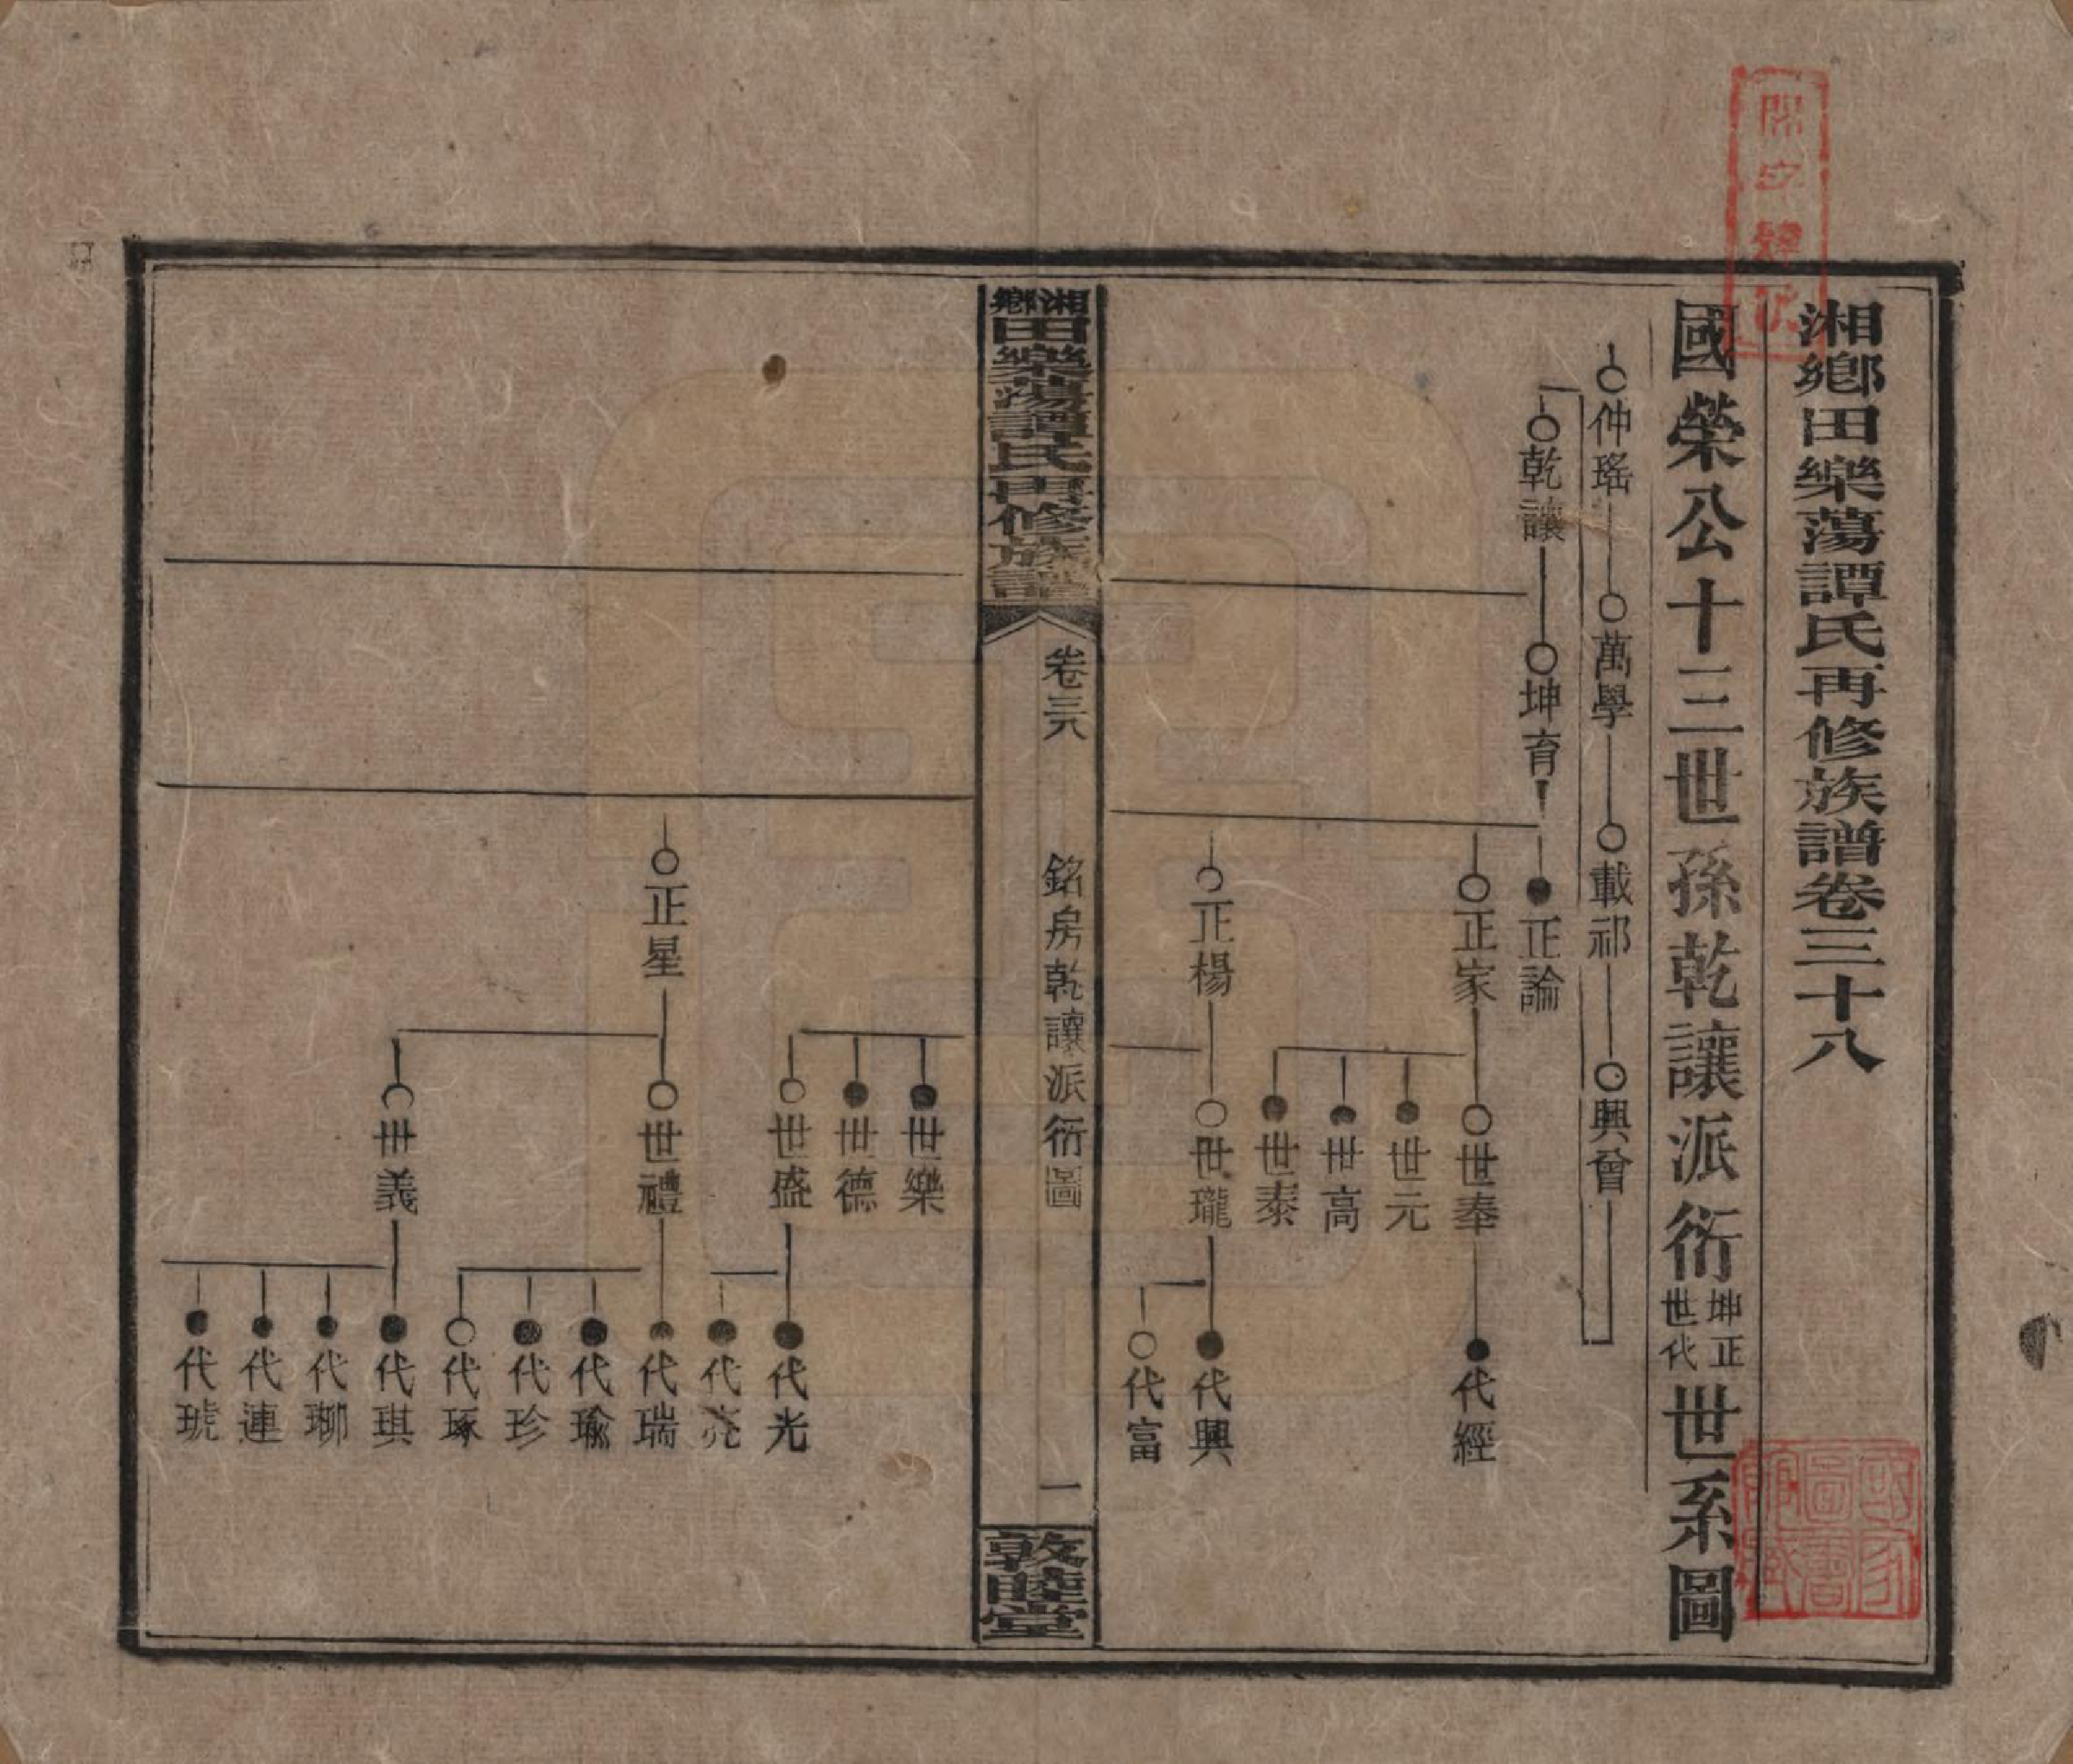 湘鄉田樂蕩譚氏再修族譜卷三十八
國榮公十三世孫乾讓派衍坤正世代世系圖
仲瑤
萬學
載祁
興曾
乾讓
坤育
正論
正家
世奉
代經
世元
世高
世泰
正楊
世瓏
代興
代富
湘鄉田樂蕩譚氏再修族譜
卷三八
銘房乾讓派衍圖
一
敦睦堂
世樂
世德
世盛
代光
代亮
正星
世禮
代瑞
代瑜
代珍
代琢
世義
代琪
代瑘
代連
代琥
國家圖書館藏